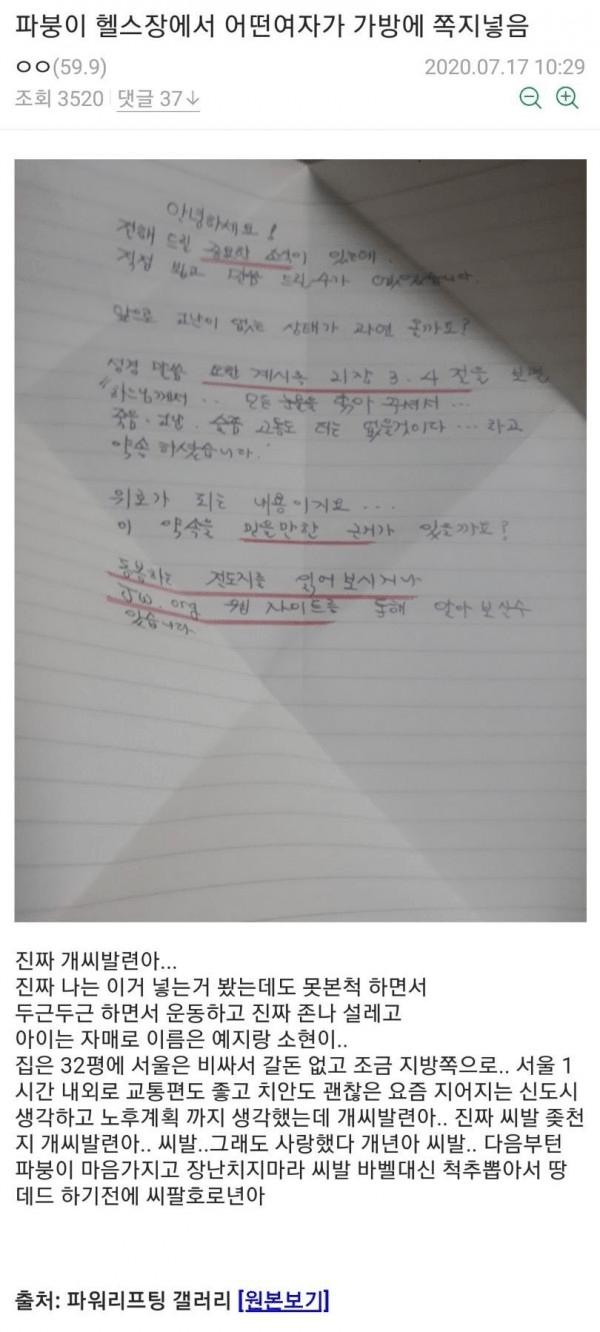 파붕이 헬스장에서 어떤여자가 가방에 쪽지넣음
ㅇㅇ(59.9)
2020.07.17 10:29
조회 3520
댓글 37↓
안녕하세요!
전해 드릴 중요한 소식이 있는데
직접 뵙고 말씀 드릴 수가 없었습니다.
앞으로 고난이 없는 상태가 과연 올까요?
성경 말씀 요한 계시록 21장 3.4 전을 보면
"하느님께서 .. 모든 눈물을 닦아 주셔서 ...
죽음·고남. 슬픔 고통도 더는 없을것이다 ... 라고
약속 하셨습니다.
위로가 되는 내용이지요 ...
이 약속을 믿을만한 근거가 있을까요?
동봉하는 전도지를 읽어 보시거나
JW.org 웹 사이트를 통해 알아 보실수
있습니다
진짜 개씨발련아...
진짜 나는 이거 넣는거 봤는데도 못본척 하면서
두근두근 하면서 운동하고 진짜 존나 설레고
아이는 자매로 이름은 예지랑 소현이..
집은 32평에 서울은 비싸서 갈돈 없고 조금 지방쪽으로.. 서울 1
시간 내외로 교통편도 좋고 치안도 괜찮은 요즘 지어지는 신도시
생각하고 노후계획 까지 생각했는데 개씨발련아.. 진짜 씨발 좆천
지 개씨발련아.. 씨발..그래도 사랑했다 개년아 씨발.. 다음부턴
파붕이 마음가지고 장난치지마라 씨발 바벨대신 척추뽑아서 땅
데드 하기전에 씨팔호로년아
출처: 파워리프팅 갤러리 [원본보기]